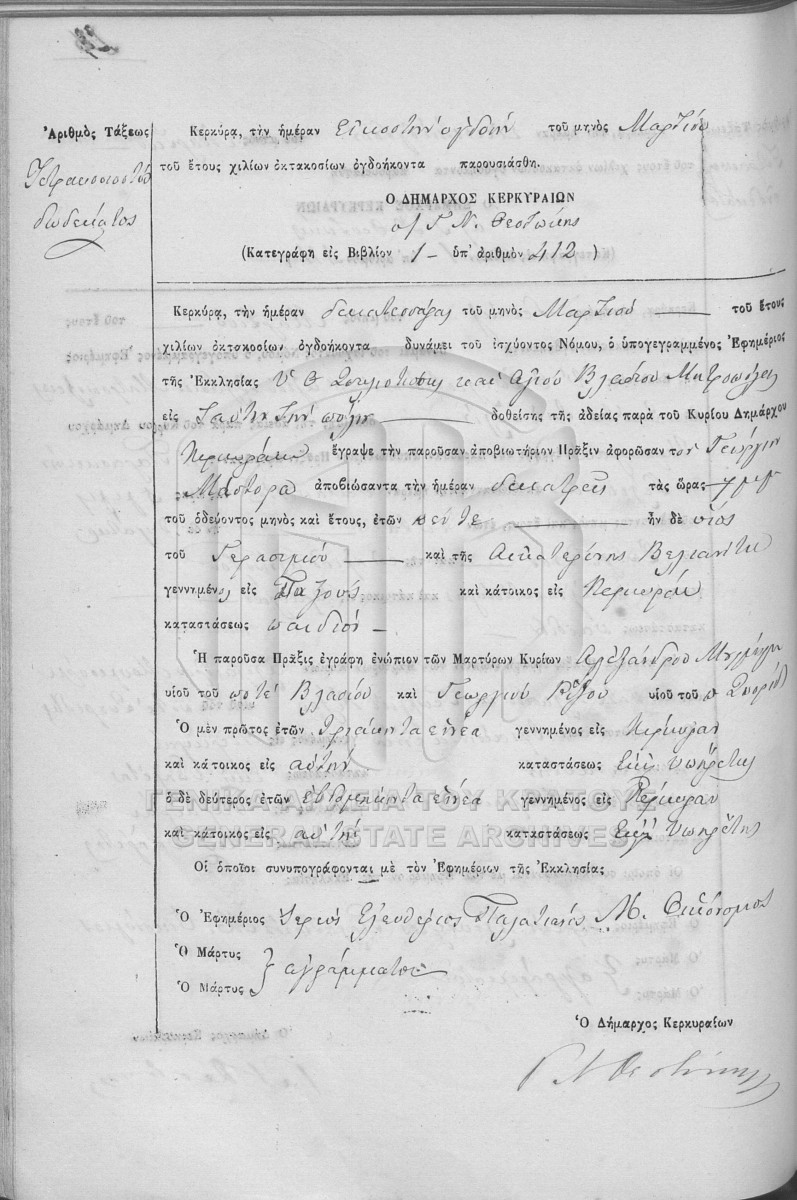 Ἀριθμὸς Τάξεως
Τετρακοσιοστὸς
δωδέκατος
Κερκύρα, τὴν ἡμέραν εἰκοστὴν ὀγδόην τοῦ μηνὸς Μαρτίου
τοῦ ἔτους χιλίων ὀκτακοσίων ὀγδοήκοντα παρουσιάσθη.
Ὁ ΔΗΜΑΡΧΟΣ ΚΕΡΚΥΡΑΙΩΝ
Γ Ν. Θεοτόκης
(Κατεγράφη εἰς Βιβλίον 1 - ὑπ' ἀριθμὸν 412 )
Κερκύρα, τὴν ἡμέραν δεκατεσσάρας τοῦ μηνὸς Μαρτίου τοῦ ἔτους
χιλίων ὀκτακοσίων ὀγδοήκοντα δυνάμει τοῦ ἰσχύοντος Νόμου, ὁ ὑπογεγραμμένος Ἐφημέριος
τῆς Ἐκκλησίας Υ Θ Σπηλιοτίσσης καὶ Ἁγίου Βλασίου Μητροπόλεως
εἰς ταύτην τὴν πόλιν δοθείσης τῆς ἀδείας παρὰ τοῦ Κυρίου Δημάρχου
Κερκυραίων ἔγραψε τὴν παροῦσαν ἀποβιωτήριον Πρᾶξιν ἀφορῶσαν τὸν Γεώργιον
Μάστορα ἀποβιώσαντα τὴν ἡμέραν δεκατρεῖς τὰς ὥρας 7 μ μ
τοῦ ὁδεύοντος μηνὸς καὶ ἔτους, ἐτῶν πέντε ἦν δὲ υἱὸς
τοῦ Γερασίμου καὶ τῆς Αἰκατερίνης Βελιανίτη
γεννημένος εἰς Παξοὺς καὶ κάτοικος εἰς Κερκύραν
καταστάσεως παιδίον -
Ἡ παροῦσα Πρᾶξις ἐγράφη ἐνώπιον τῶν Μαρτύρων Κυρίων Ἀλεξάνδρου
υἱοῦ τοῦ ποτὲ Βλασίου καὶ Γεωργίου Ρίζου υἱοῦ τοῦ π Σπυρίδ
Ὁ μὲν πρῶτος ἐτῶν τριάκοντα ἐννέα γεννημένος εἰς Κέρκυραν
καὶ κάτοικος εἰς αὐτὴν καταστάσεως Ἐκκλ Ὑπηρέτης
ὁ δὲ δεύτερος ἐτῶν ἑβδομήκοντα ἐννέα γεννημένος εἰς Κέρκυραν
καὶ κάτοικος εἰς αὐτὴν καταστάσεως Ἐκκλ Ὑπηρέτης
Οἱ ὁποῖοι συνυπογράφονται μὲ τὸν Ἐφημέριον τῆς Ἐκκλησίας
Ὁ Ἐφημέριος Ἱερεὺς Ἐλευθέριος Παλατιανὸς Μ. Οἰκονόμος
Ὁ Μάρτυς
ἀγράμματοι
Ὁ Μάρτυς
Ὁ Δήμαρχος Κερκυραίων
Γ Ν Θεοτόκης
ΓΕΝΙΚΑ ΑΡΧΕΙΑ ΤΟΥ ΚΡΑΤΟΥΣ
GENERAL STATE ARCHIVES